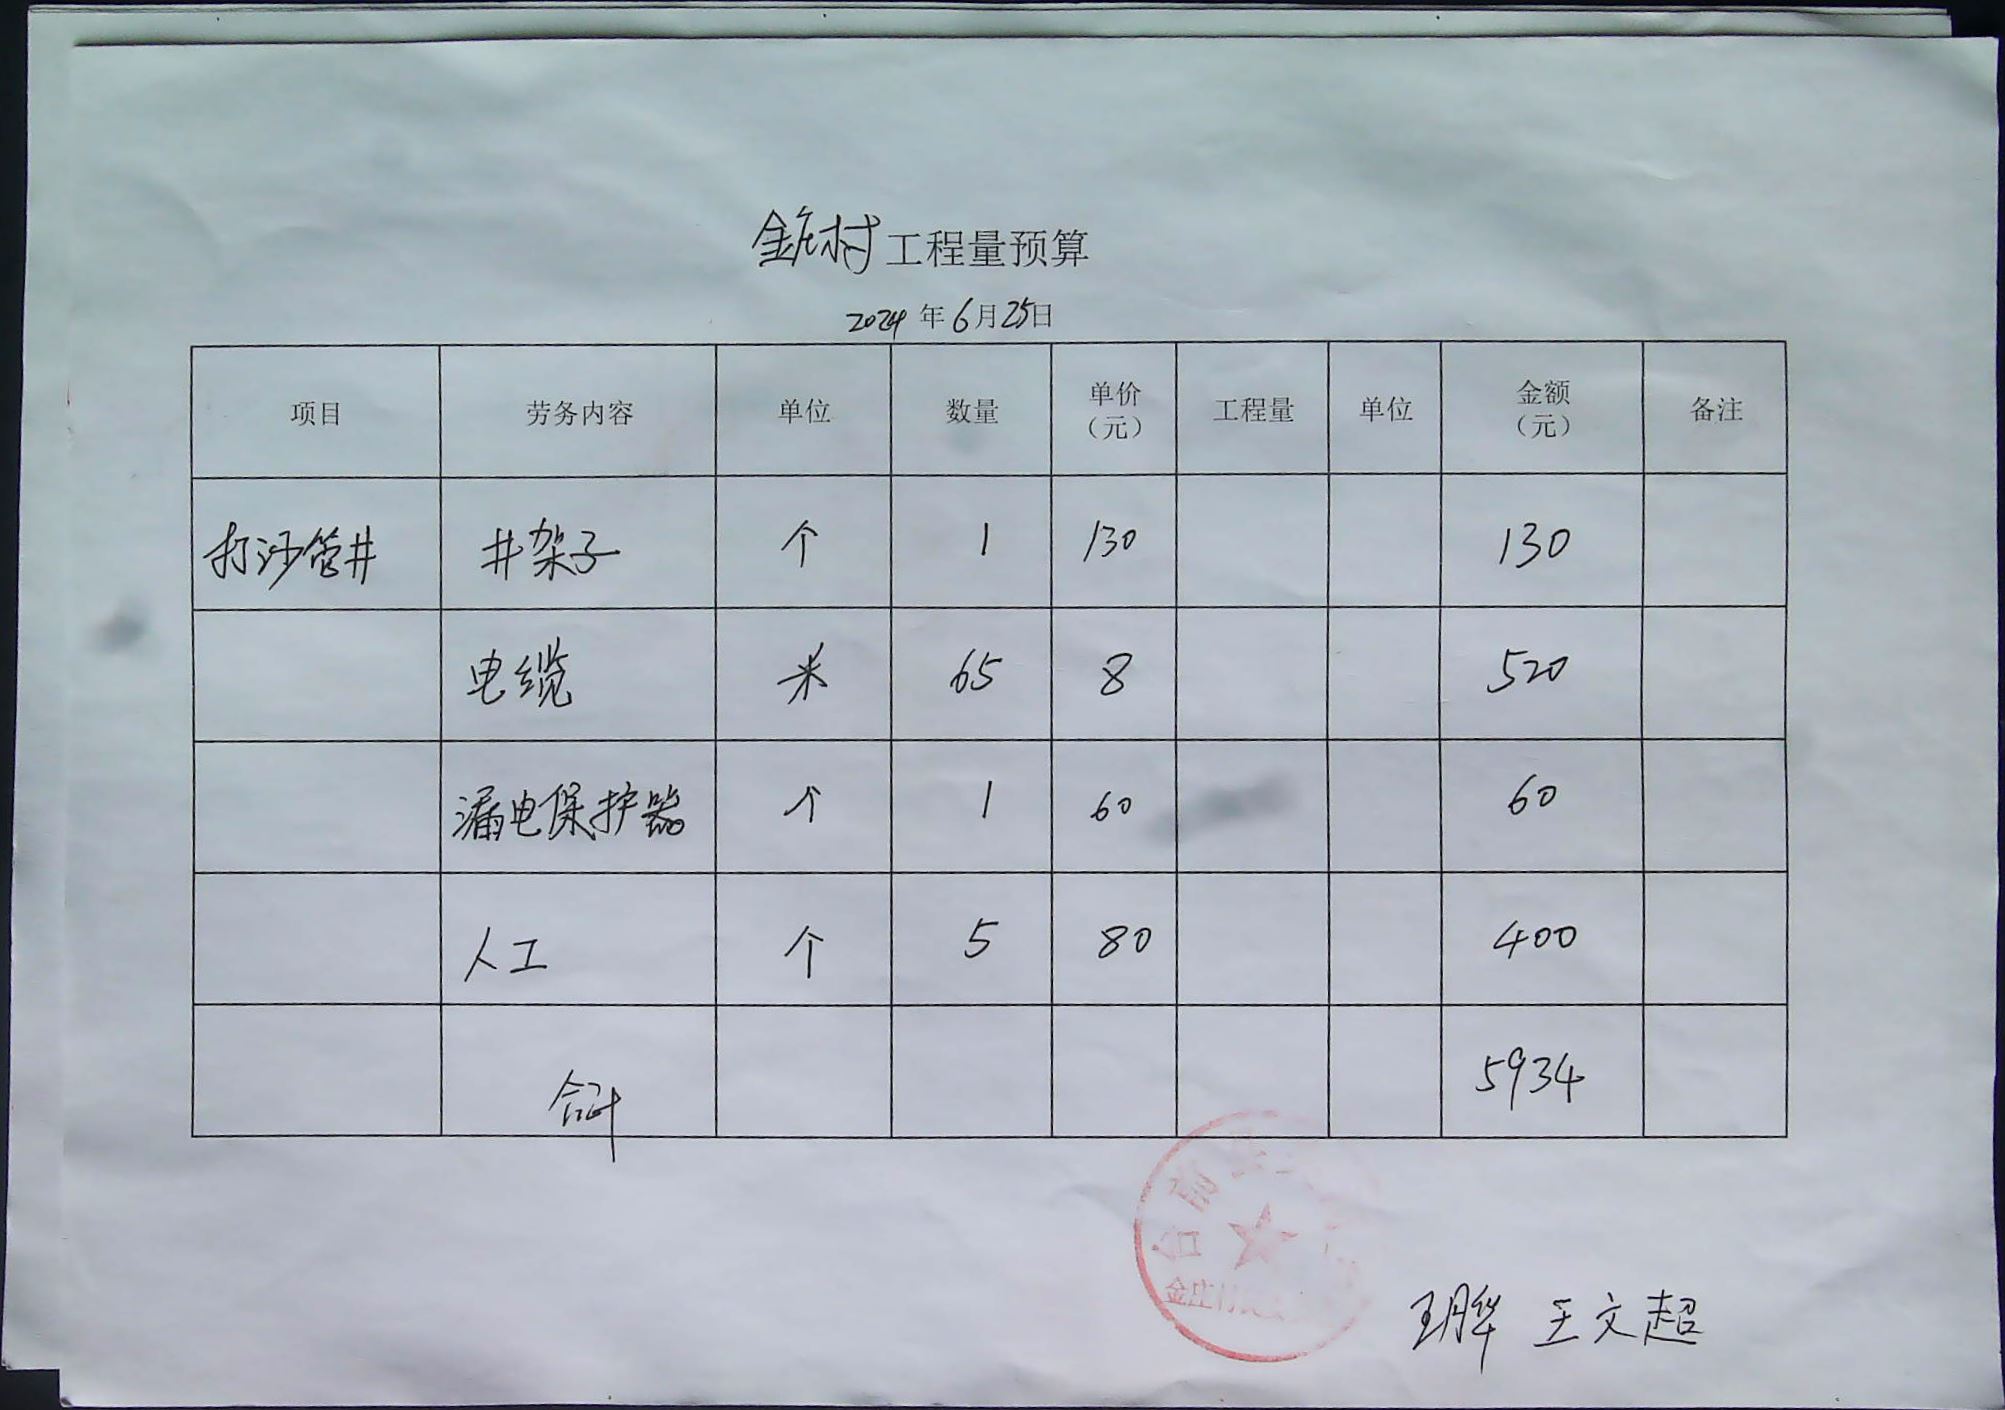 金庄村工程量预算
2024年6月25日
项目 劳务内容 单位 数量 单价（元） 工程量 单位 金额（元） 备注
打沙管井 井架子 个 1 130 130
电缆 米 65 8 520
漏电保护器 个 1 60 60
人工 个 5 80 400
合计 5934
台前县
金庄村
王文超